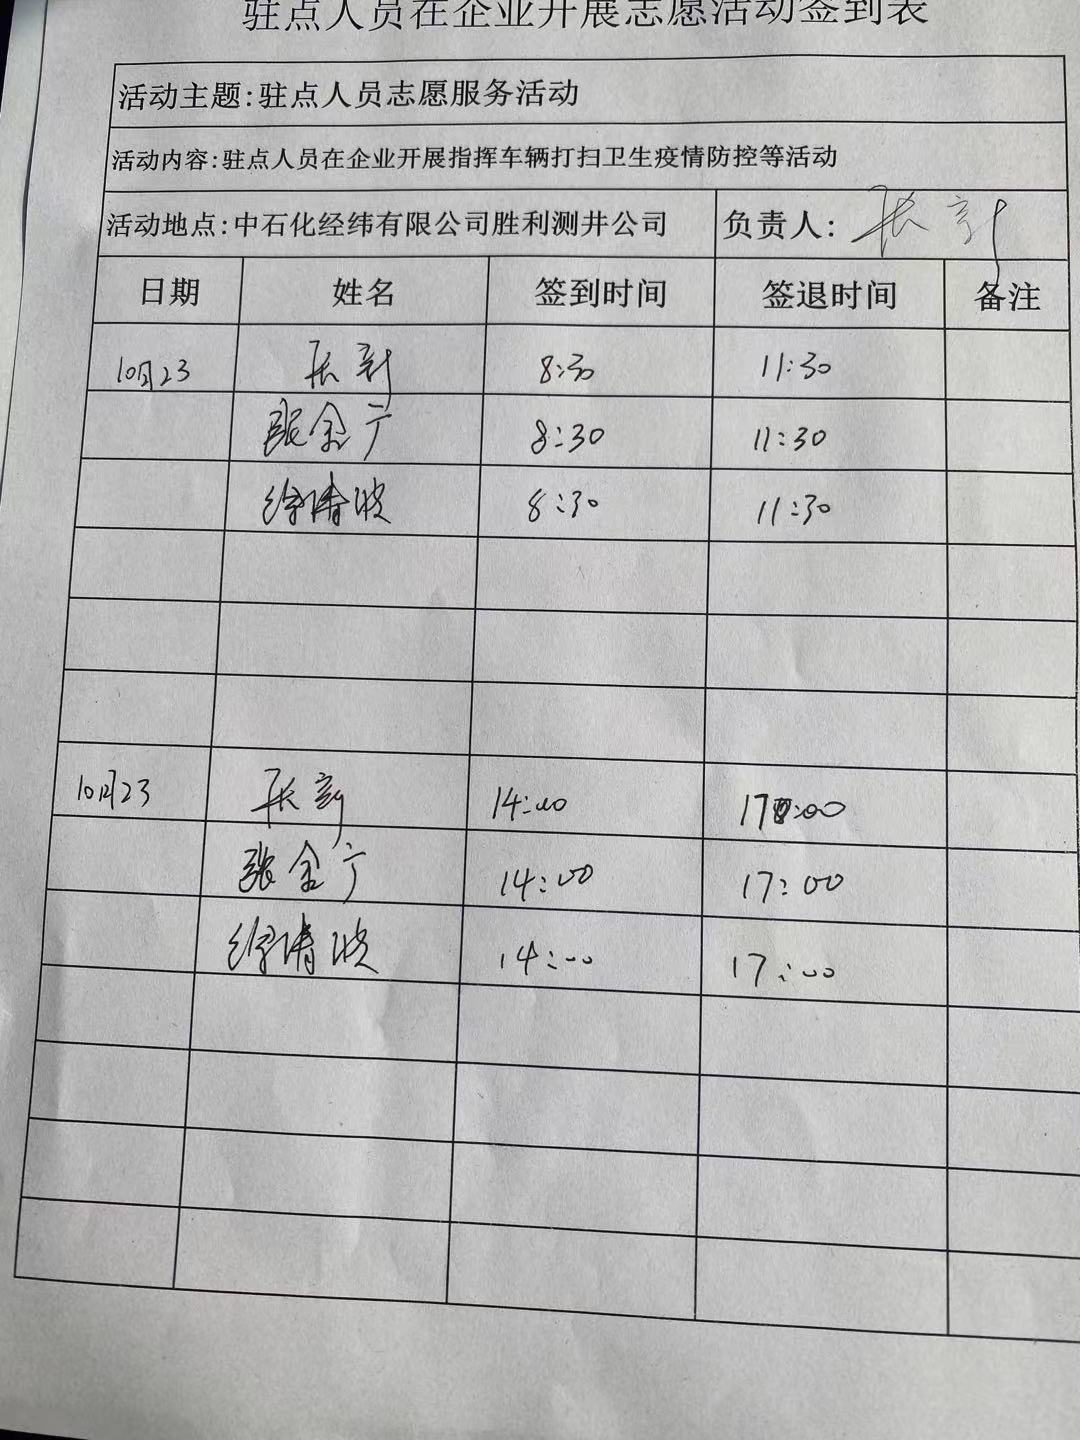 驻点人员在企业开展志愿活动签到表
活动主题:驻点人员志愿服务活动
活动内容:驻点人员在企业开展指挥车辆打扫卫生疫情防控等活动
活动地点:中石化经纬有限公司胜利测井公司 负责人: 张新
日期 姓名 签到时间 签退时间 备注
10月23 张新 8:30 11:30
张金广 8:30 11:30
徐清波 8:30 11:30
10月23 张新 14:00 17:00
张金广 14:00 17:00
徐清波 14:00 17:00